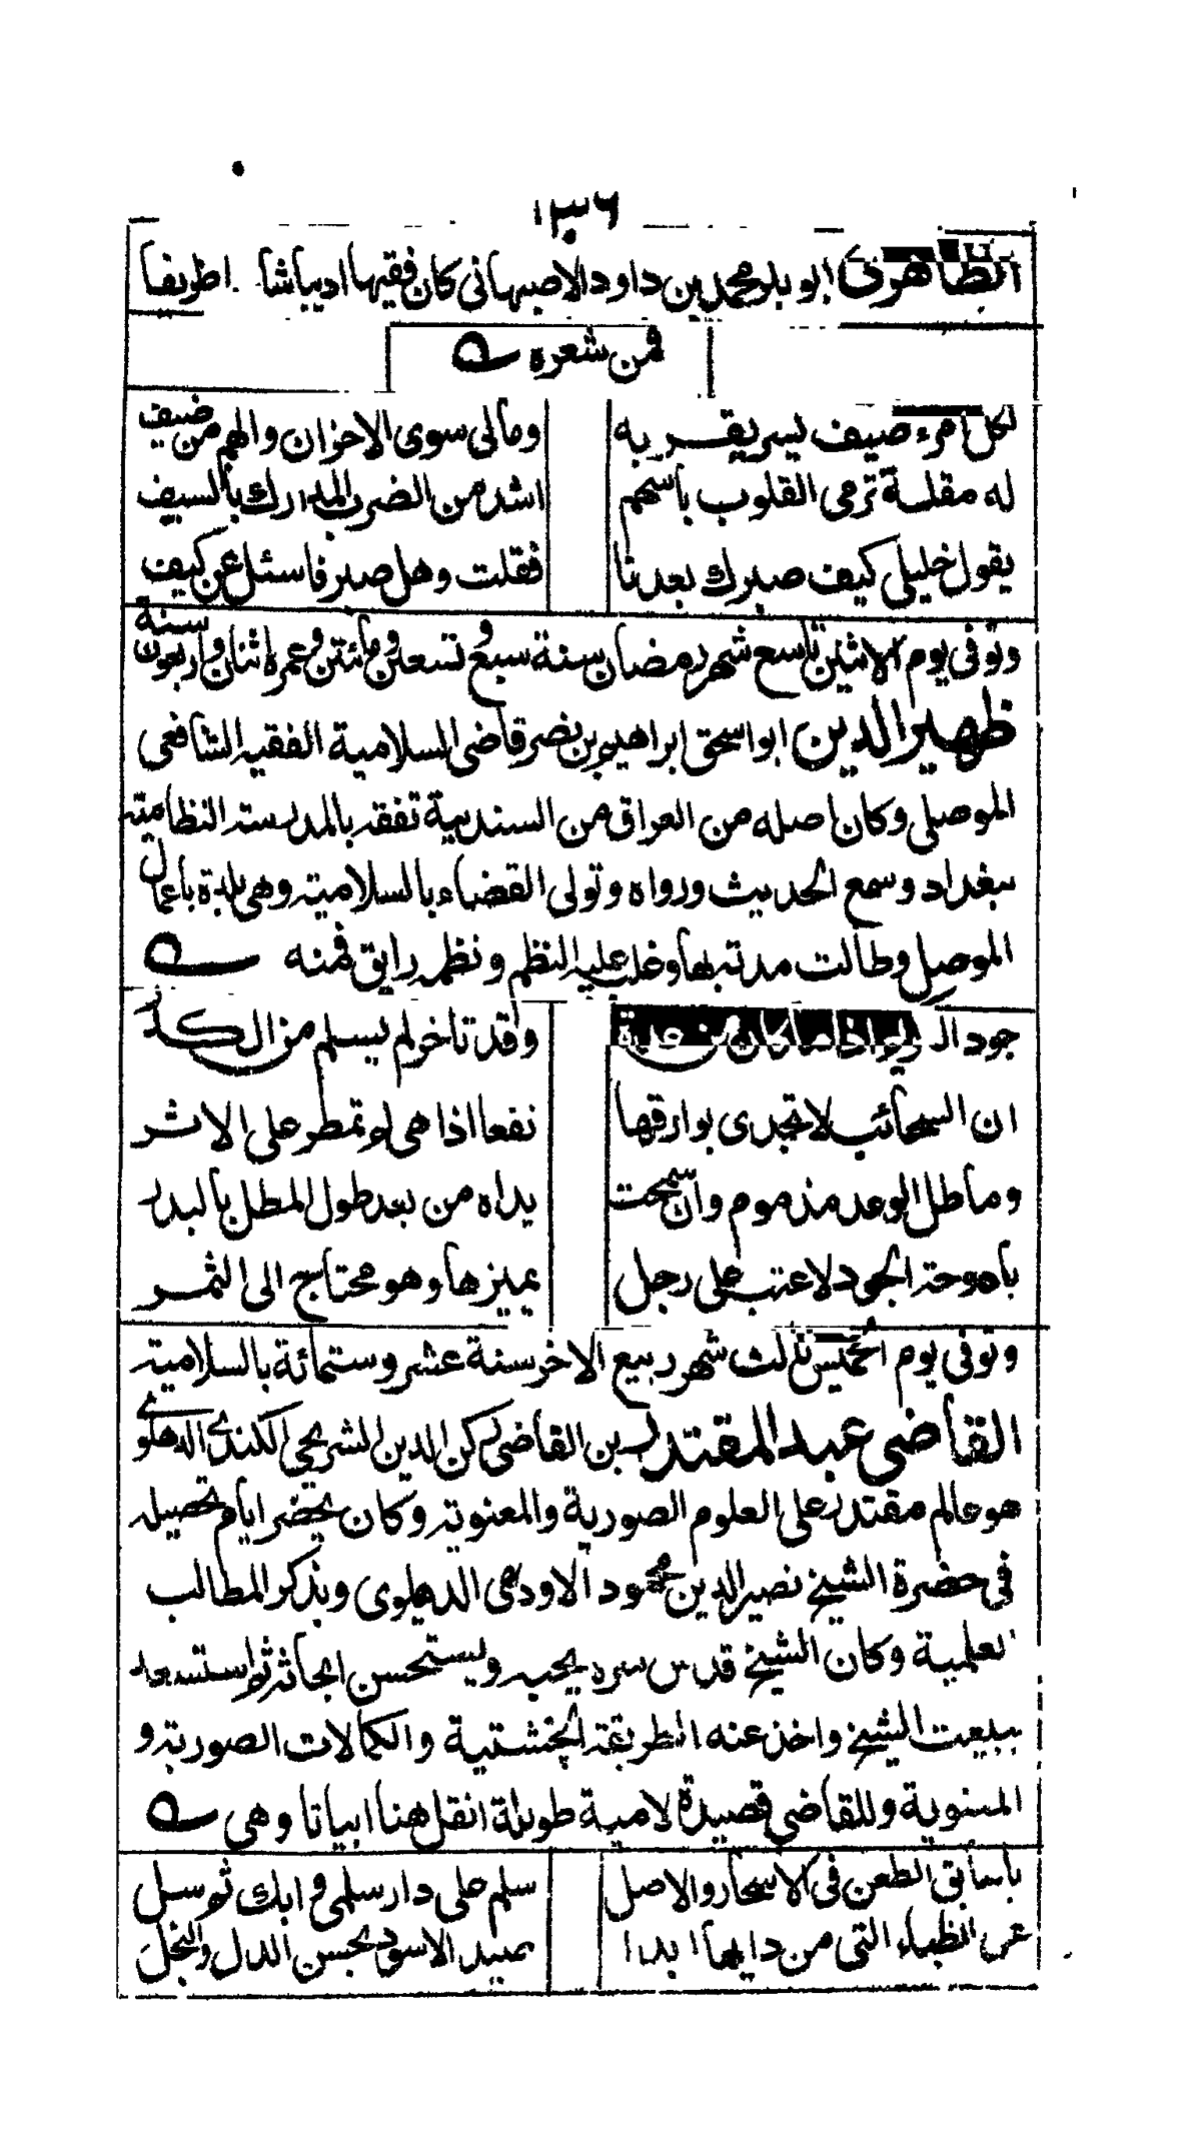 ١٣٦
الظاهرى ابو بكر محمد بن داود الاصبهانى كان فقيها اديبا شاعرا ظريفا
فمن شعره
لكل امرء ضيف يسر بقربه
ومالى سوى الاحزان والهم من ضيف
له مقلة ترمى القلوب باسهم
اشد من الضرب المدارك بالسيف
يقول خليلى كيف صبرك بعدنا
فقلت وهل صبر فاسئل عن كيف
وتوفى يوم الاثنين تاسع شهر رمضان سنة سبع وتسعين ومائتين وعمره اثنان واربعون سنة
ظهير الدين ابو اسحق ابراهيم بن نصر قاضى السلامية الفقيه الشافعى
الموصلى وكان اصله من العراق من السندية تفقه بالمدرسة النظامية
ببغداد وسمع الحديث ورواه وتولى القضاء بالسلامية وهى بلدة باعمال
الموصل وطالت مدته بها وغلب عليه النظم ونظمه رايق فمنه
جود الكريم اذا ما كان عن عدة
وقد تاخر لم يسلم من الكدر
ان السحائب لا تجدى بوارقها
نفعا اذا هى لم تمطر على الاثر
وماطل الوعد مذموم وان سمحت
يداه من بعد طول المطل بالبدر
يا دوحة الجود لا عتب على رجل
يميزها وهو محتاج الى الثمر
وتوفى يوم الخميس ثالث شهر ربيع الاخر سنة عشر وستمائة بالسلامية
القاضى عبد المقتدر بن القاضى ركن الدين الشريحى الكندى الدهلوى
هو عالم مقتدر على العلوم الصورية والمعنوية وكان يحضر ايام تحصيله
فى حضرة الشيخ نصير الدين محمود الاودهى الدهلوى ويذكر المطالب
العلمية وكان الشيخ قدس سره يحبه ويستحسن ابحاثه ثم استسعد
ببيعت الشيخ واخذ عنه الطريقة الچشتية والكمالات الصورية و
المعنوية وللقاضى قصيدة لامية طويلة انقل هنا ابياتا وهى
يا سائق الظعن فى الاسحار والاصل
سلم على دار سلمى وابك ثم سل
عن الظباء التى من دابها ابدا
صيد الاسود بحسن الدل والنجل